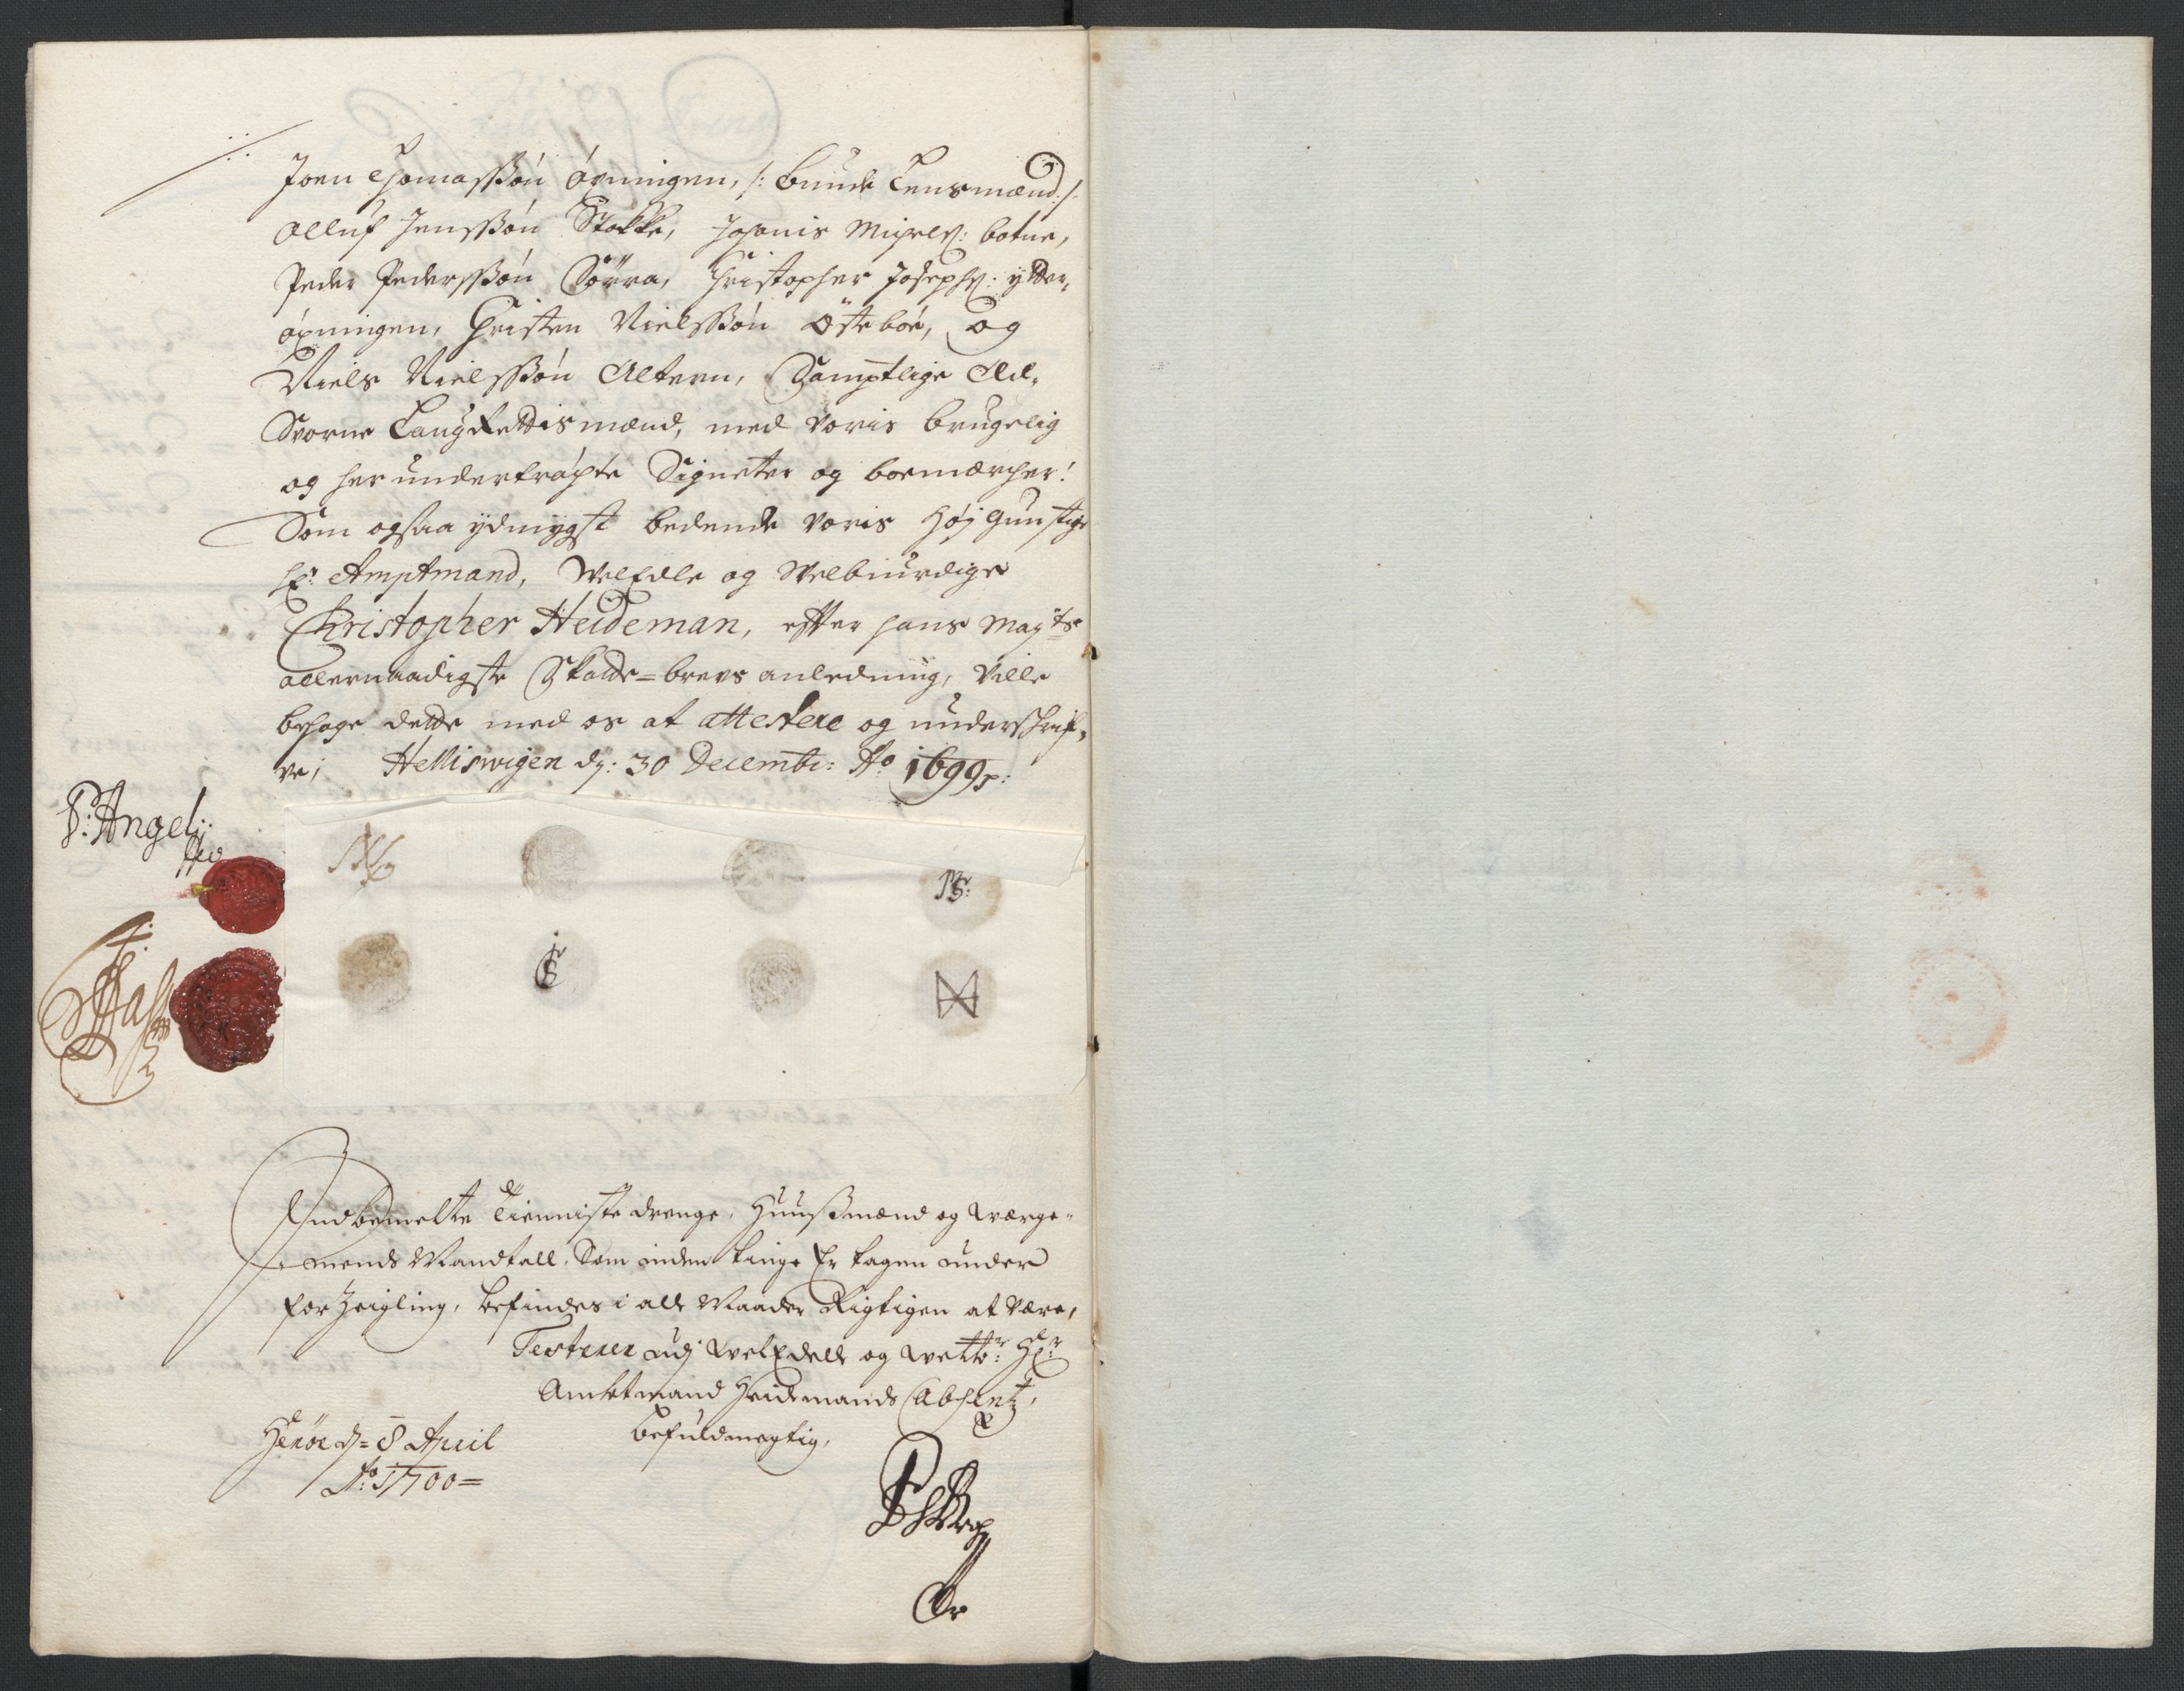 Joen Thomassøn Øxningen, /: Bunde Lensmænd :/
Olluf Jenssøn Stokke, Johanis Michels: botne,
Peder Pederssøn Sørra, Christopher Josephs: ytter,
øxningen, Christen Nielssøn Østebøe, og
Niels Nielssøn Alteren, Samptlige Ed,
Svorne Laugrettismænd, med voris brugelig
og her undertrøgte Signeter og boemærcher!
Som ogsaa ydmygst bedende voris Høj gunstige
Hr: Amptmand, WelEdle og Welbiurdige
Christopher Heideman, effter hans Maj:ts
allernaadigste Skatte=brevs anledning, Ville
behage dette med os at attestere og underschrif,
ve; Hellisvigen dj: 30 Decembr: Ao 1699
P: Angel
IS:
Indbemelte Tienniste drenge, Huusmænd og Værge,
mends Mandtall, Som inden tinge Er tagen under
for Zeigling, befindes i alle Maader Rigtigen at være,
Testerer udj WelEdelle og Hr:
Ambtmand Heidemands Absentz,
befuldmegtig,
Herøe d= 8 April
Ao: 1700=